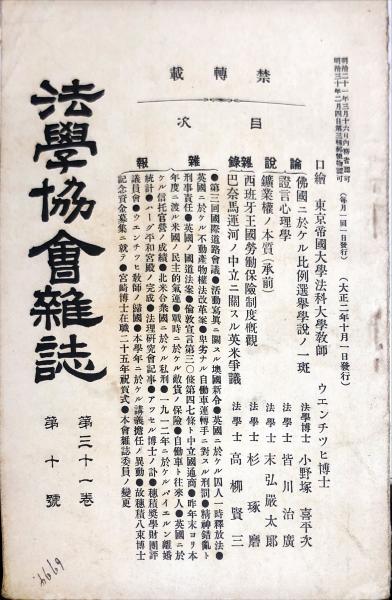 明治二十一年三月十六日内務省認可
明治三十一年二月四日第三種郵便物認可
(每月一回一日發行)
(大正二年十月一日發行)
禁轉載
目次
口繪 東京帝國大學法科大學敎師 ウエンチツヒ博士
論說
佛國ニ於ケル比例選擧學說ノ一斑 法學博士 小野塚喜平次
證言心理學 法學士 皆川治廣
鑛業權ノ本質(承前) 法學士 末弘嚴太郞
雜錄
西班牙王國勞働保險制度槪觀 法學士 杉琢磨
巴奈馬運河ノ中立ニ關スル英米爭議 法學士 高柳賢三
雜報
●第三回國際道路會議●活動寫眞ニ關スル墺國新令●英國ニ於ケル囚人一時釋放法●
英國ニ於ケル不動產物權法改革案●卑劣ケル自働車運轉手ニ對スル刑罰●精神錯亂ト
刑事責任●英國ノ國道法案●倫敦宣言第三〇條第四七條ト中立國通商●昨年末ヨリ本
年度ニ渡ル米國ノ民主的氣運●戰時ニ於ケル敵貨ノ保險●自働車ト往來人●英國ニ於
ケル信托官營ノ成績●北米合衆國ニ於ケル私刑●一九一二年ニ於ケルバイエルン離婚
統計●ハーグ平和宮殿ノ完成●法理硏究會記事●アツセル博士ノ訃●穗積奬學財團評
議員會●ウエンチツヒ敎師ノ歸國●本學年ニ於ケル講義擔任ノ異動●故穗積八束博士
記念資金募集ニ就テ●宮崎博士在職二十五年祝賀式●本會雜誌委員ノ變更
法學協會雜誌
第三十一卷
第十號